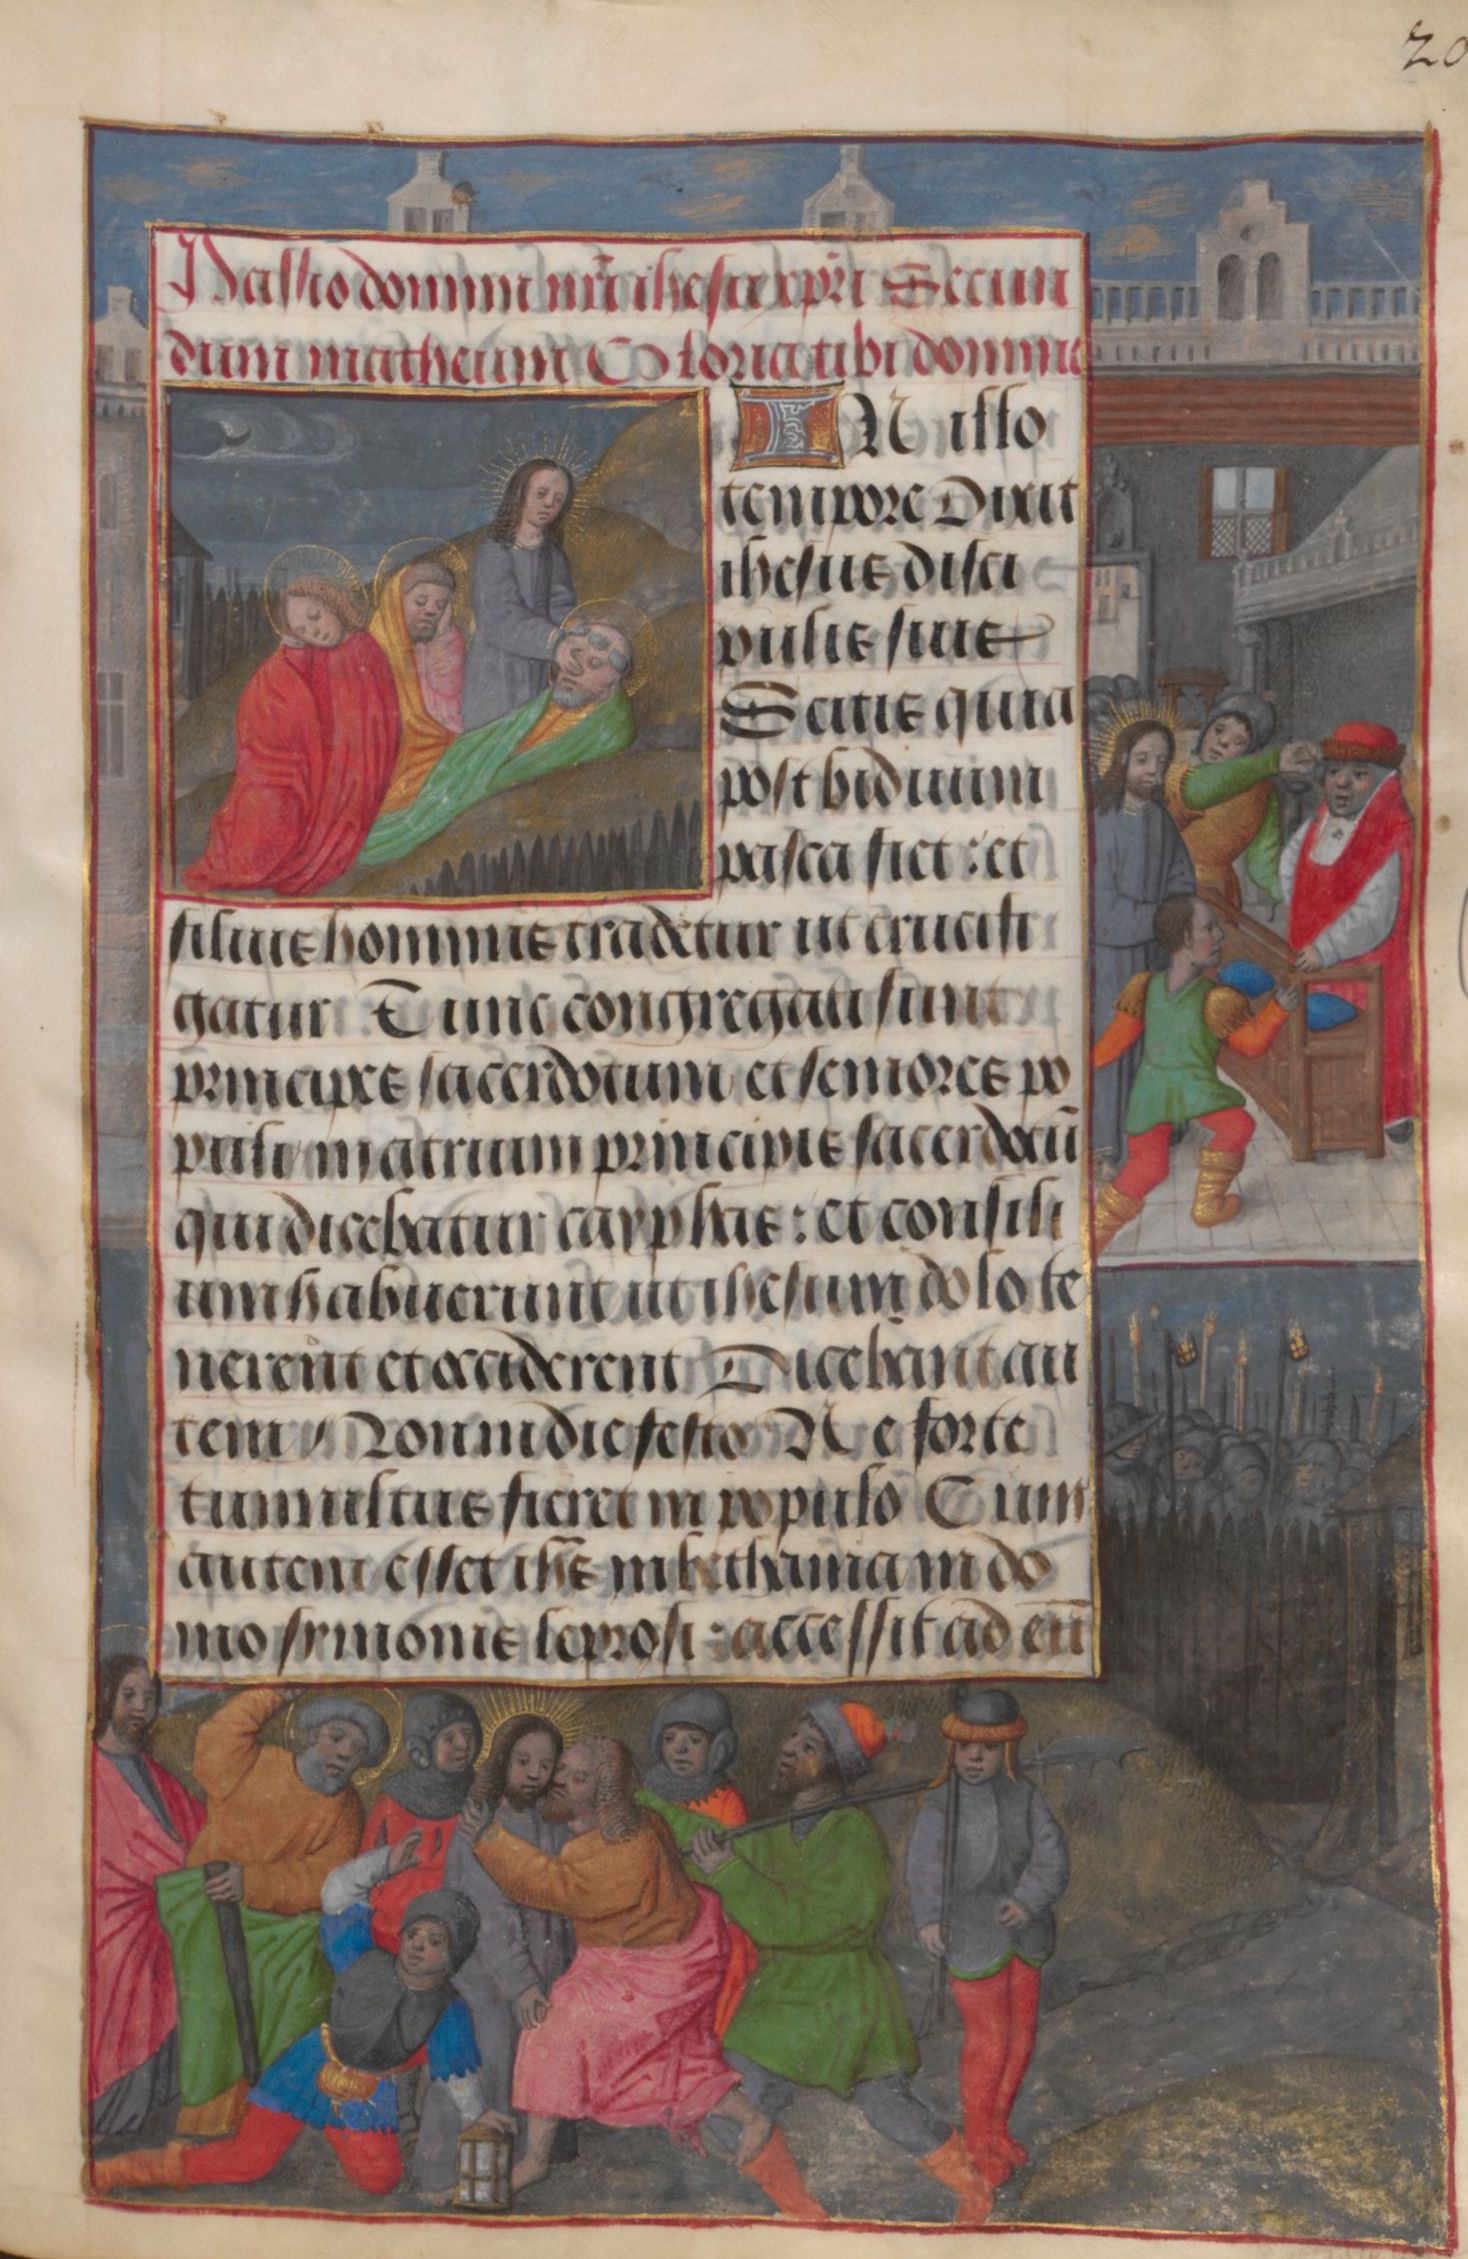 20
Passio domini nr̄i ihesu xp̄i Secun
dum matheum Gloria tibi domine
IN illo
tempore Dixit
ihesus disci
pulis suis
Scitis quia
post biduum
pasca fiet : et
filius hominis tradetur ut crucifi
gatur Tunc congregati sunt
principes sacerdotum et seniores po
puli in atrium principis sacerdotū
qui dicebatur cayphas : et consili
um habuerunt ut ihesum dolo te
nerent et occiderent Dicebant au
tem / Non in die festo Ne forte
tumultus fieret in populo Cum
autem esset ihs̄ in bethania in do
mo symonis leprosi : accessit ad eū